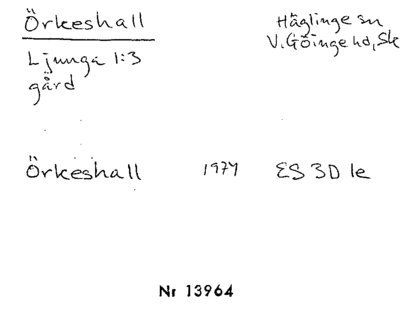 Örkeshall
Häglinge sn
V. Göinge hd, Sk
Ljunga 1:3
gård
Örkeshall 1974 ES 3D 1e
Nr 13964